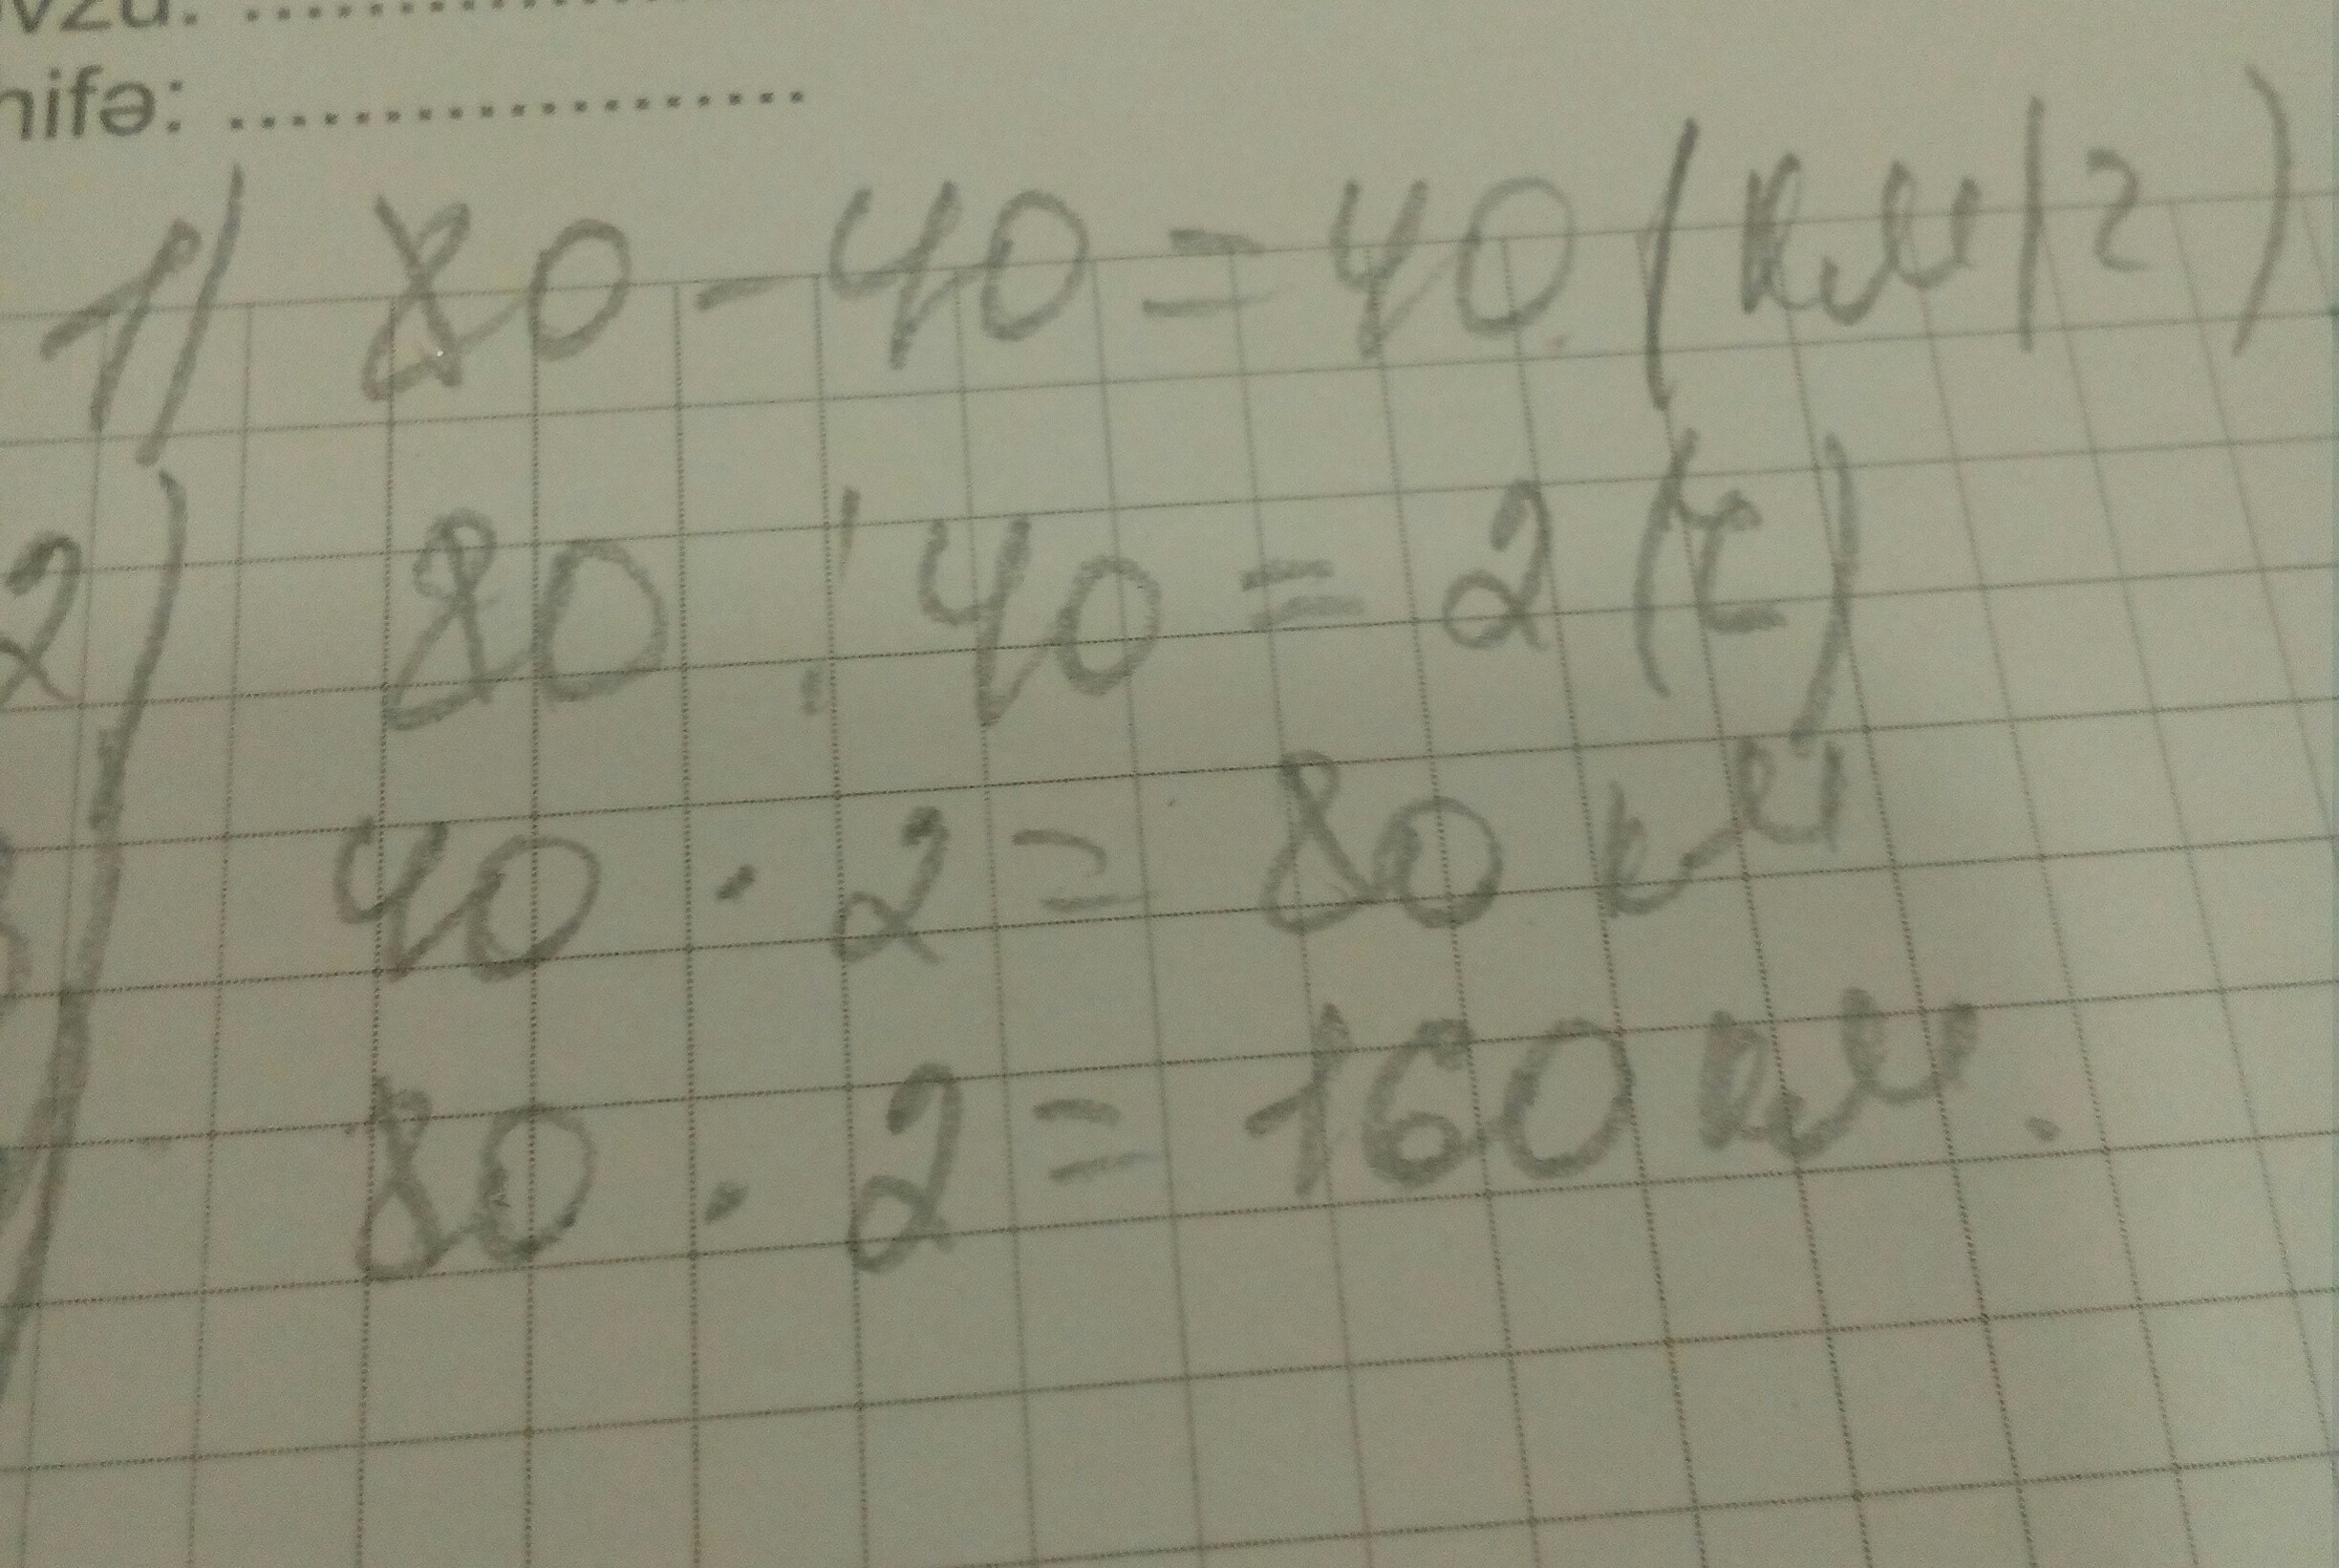 vzu: ....................
hifə: ....................
1) 80 - 40 = 40 (км/г)
2) 80 : 40 = 2 (г)
40 · 2 = 80 км
80 · 2 = 160 км.